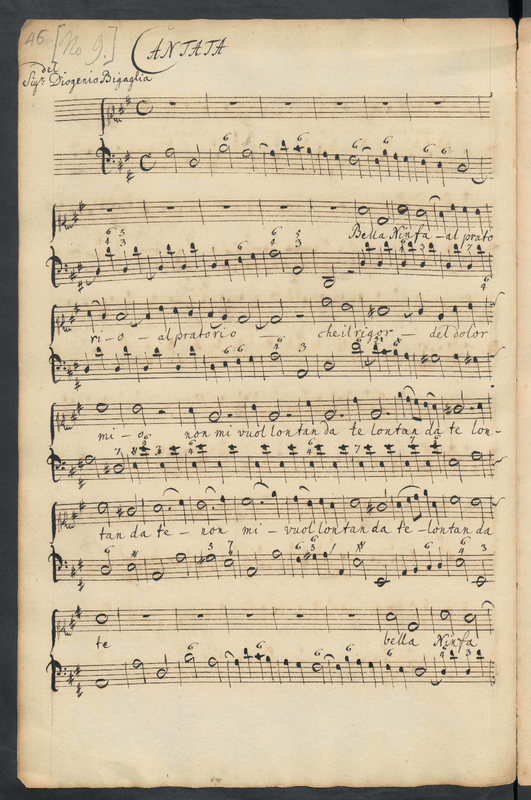 46. [No 9.] CANTATA
del
Sigr. Diogenio Bigaglia
Bella Ninfa - al prato
ri - o - al prato rio - che il rigor - del dolor
mi - o non mi vuol lontan da te lontan da te lon-
tan da te - non mi - vuol lontan da te - lontan da
te bella Ninfa